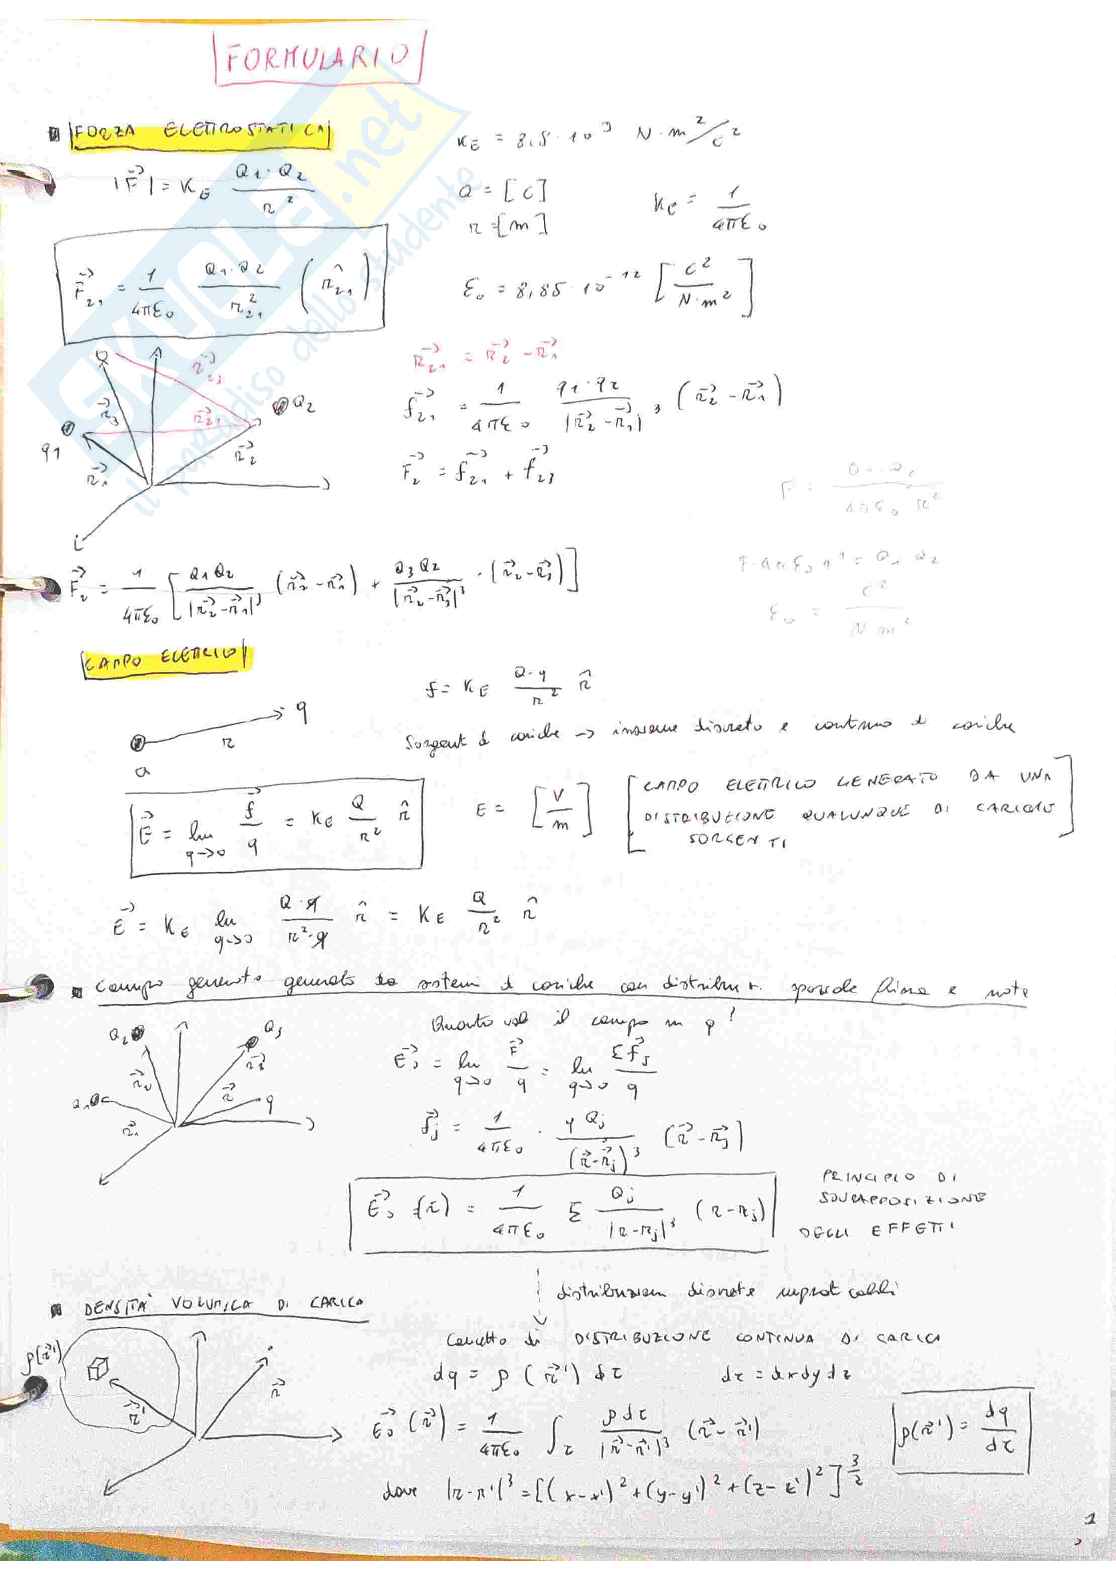 FORMULARIO
FORZA ELETTROSTATICA
|F⃗| = K_E Q₁·Q₂ / r²
K_E = 8,5·10⁹ N·m²/C²
Q = [C]
r = [m]
K_E = 1/4πε₀
F⃗₂₁ = 1/4πε₀ Q₁·Q₂/r₂₁² (r̂₂₁)
ε₀ = 8,85·10⁻¹² [C²/N·m²]
r⃗₂₁ = r⃗₂ - r⃗₁
f⃗₂₁ = 1/4πε₀ q₁·q₂/|r⃗₂-r⃗₁|³ (r⃗₂-r⃗₁)
F⃗₂ = f⃗₂₁ + f⃗₂₃
r⃗₂₃
r⃗₂₁
Q₂
r⃗₃
q₁
r⃗₁
r⃗₂
F⃗₂ = 1/4πε₀ [Q₁Q₂/|r⃗₂-r⃗₁|³ (r⃗₂-r⃗₁) + Q₃Q₂/|r⃗₂-r⃗₃|³ · (r⃗₂-r⃗₃)]
ε₀ = C²/N m²
CAMPO ELETTRICO
f = K_E Q·q/r² r̂
q
r
Q
Sorgenti di cariche → insieme discreto e continuo di cariche
E⃗ = lim q→0 f⃗/q = K_E Q/r² r̂
E = [V/m]
[CAMPO ELETTRICO GENERATO DA UNA
DISTRIBUZIONE QUALUNQUE DI CARICHE
SORGENTI]
E⃗ = K_E lim q→0 Q·q/r²·q r̂ = K_E Q/r² r̂
Campo generato generato da sistemi di cariche con distribuz. spaziale fissa e nota
Quanto vale il campo in p?
Q₂
Q₃
E⃗₀ = lim q→0 F⃗/q = lim q→0 Σf⃗j/q
r⃗
q
r⃗₁
f⃗j = 1/4πε₀ · q Qj/(r⃗-r⃗j)³ (r⃗-r⃗j)
E⃗₀(r⃗) = 1/4πε₀ Σ Qj/|r-rj|³ (r-rj)
PRINCIPIO DI
SOVRAPPOSIZIONE
DEGLI EFFETTI
DENSITA' VOLUMICA DI CARICA
Concetto di DISTRIBUZIONE CONTINUA DI CARICA
ρ(r⃗')
r⃗
r⃗'
dq = ρ(r⃗') dτ
dτ = dxdydz
E⃗₀(r⃗) = 1/4πε₀ ∫τ ρdτ/|r⃗-r⃗'|³ (r⃗-r⃗')
ρ(r⃗') = dq/dτ
dove |r-r'|³ = [(x-x')² + (y-y')² + (z-z')²]^3/2
1
SKUOLA.net
il paradiso dello studente